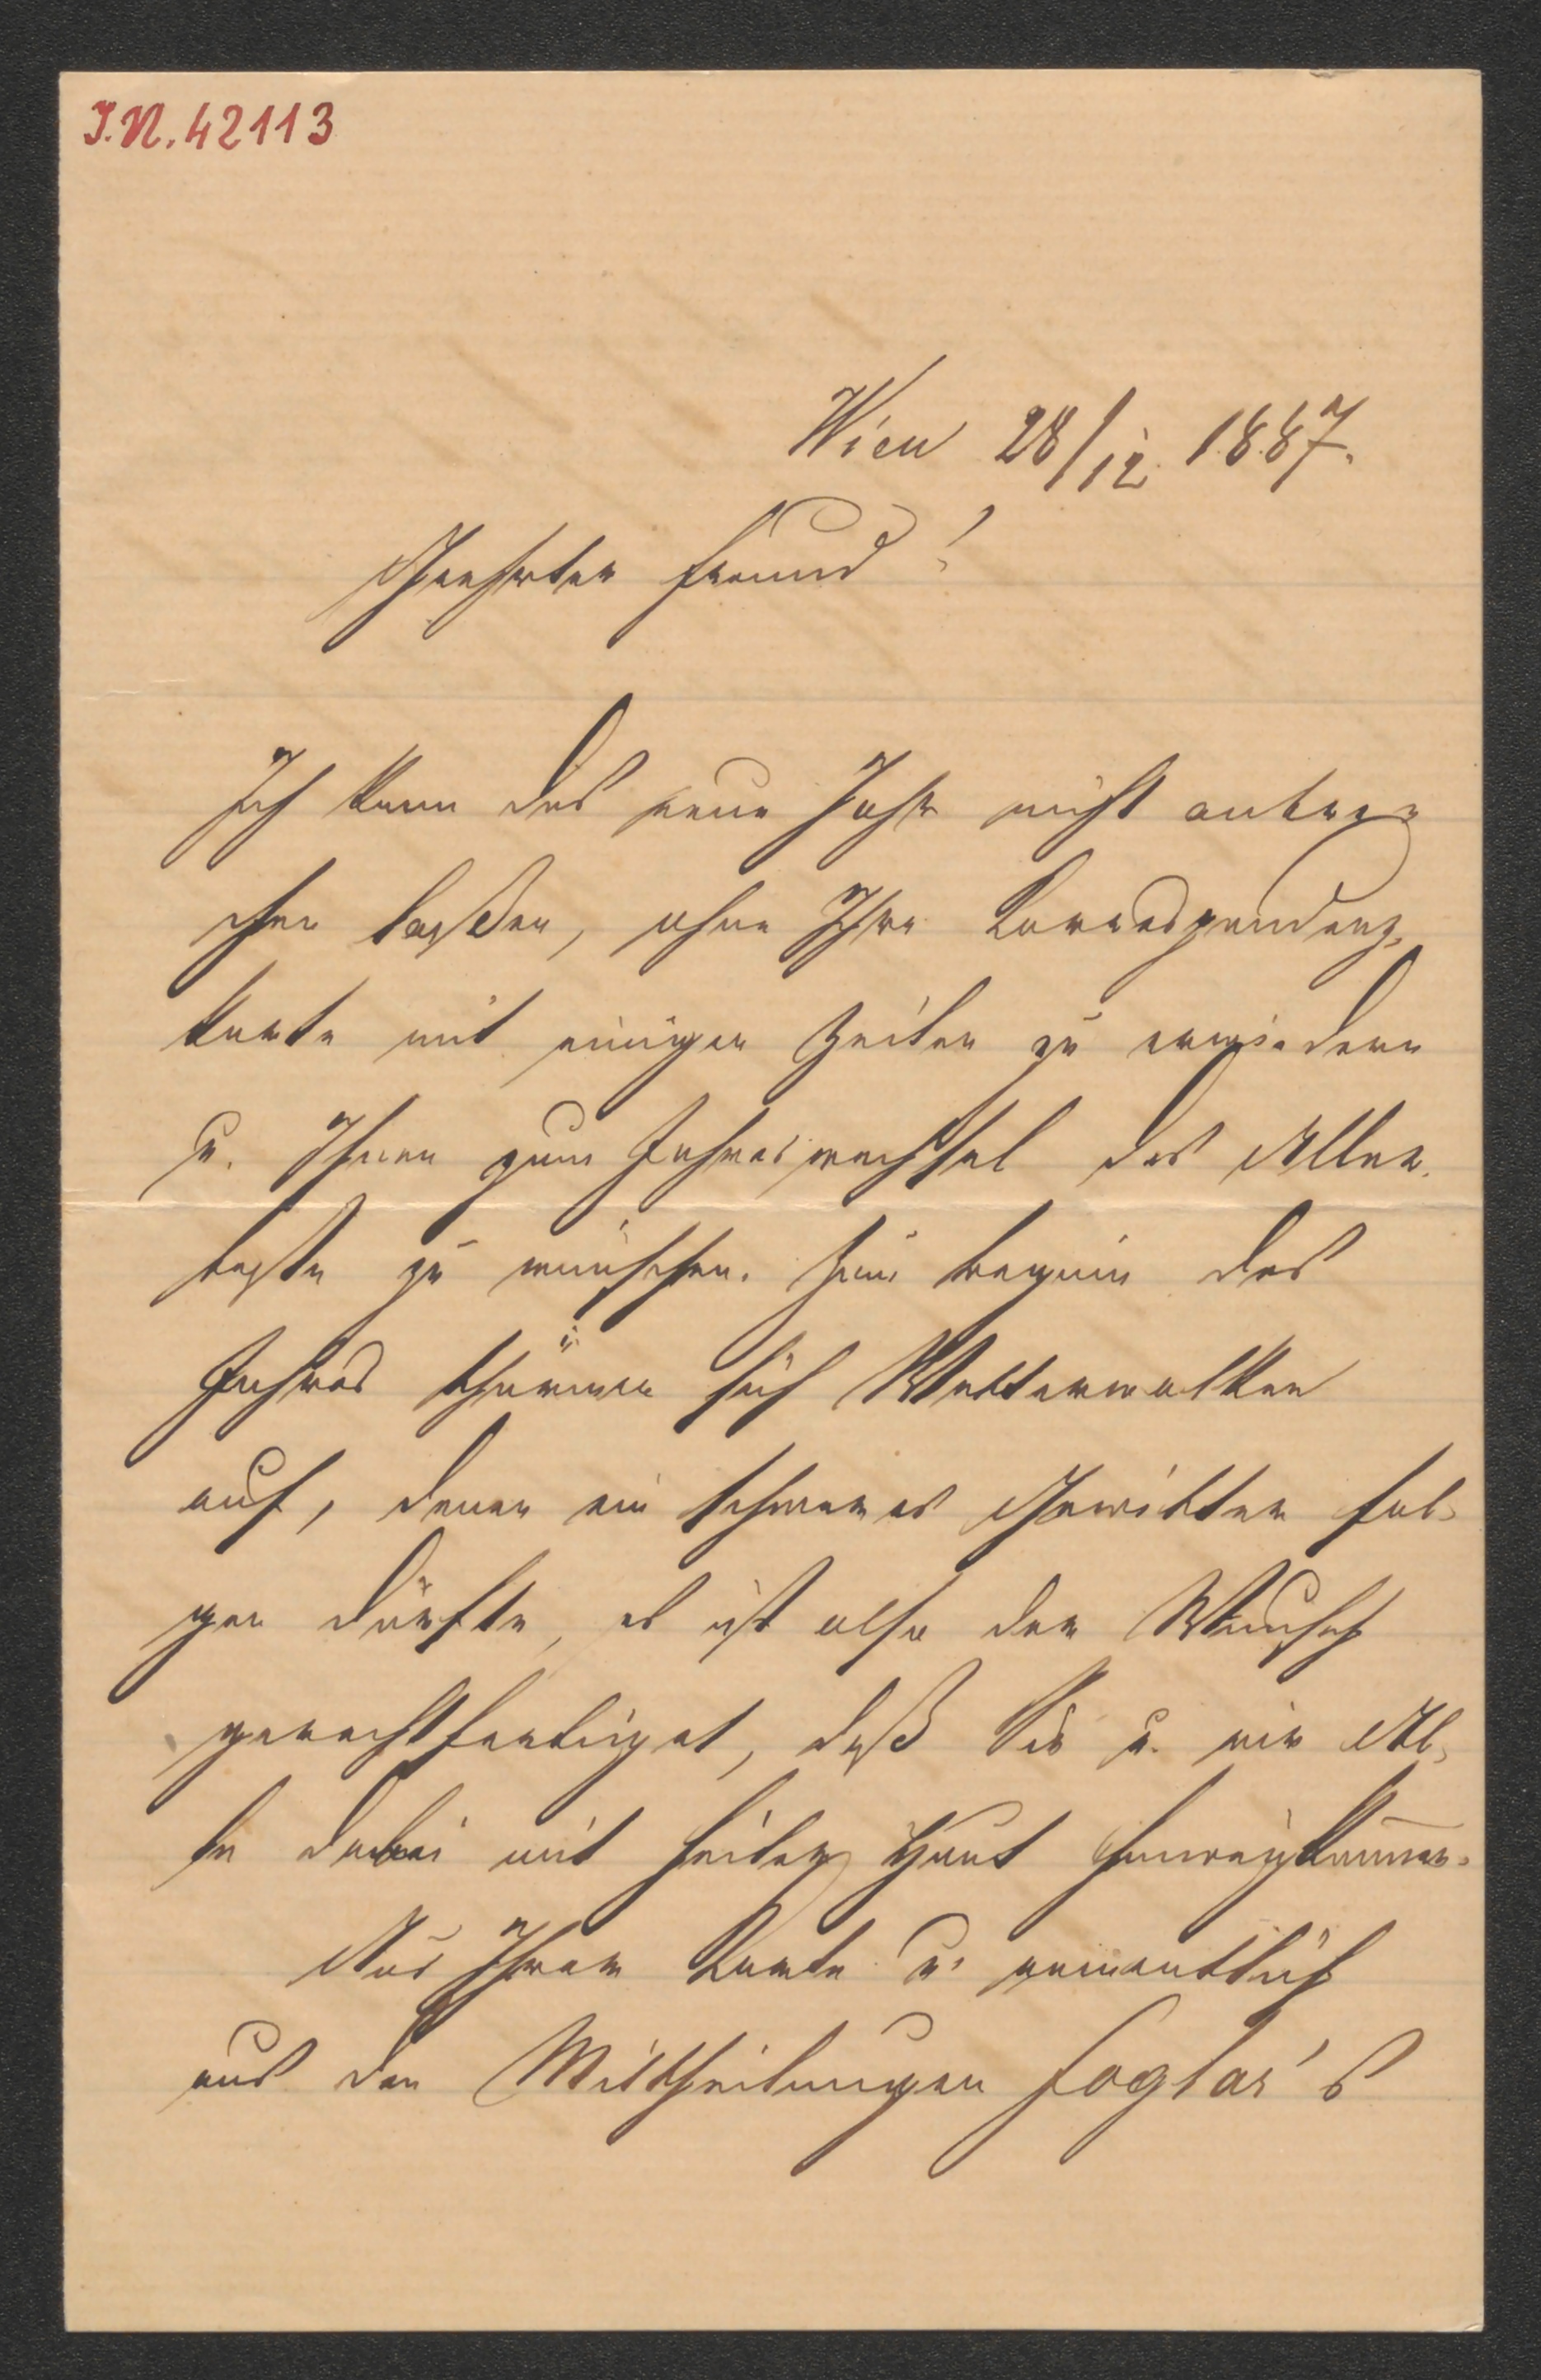 I.N. 42113
Wien 28/12. 1887.
Geehrter Freund!
Ich kann das neue Jahr nicht anbre-
chen laßen, ohne Ihre Correspondenz-
karte mit einigen Zeilen zu erwiedern
u. Ihnen zum Jahreswechsel das Aller-
beste zu wünschen. Zum beginn des
Jahres thürmen sich Wetterwolken
auf, denen ein schweres Gewitter fol-
gen dürfte, es ist also der Wunsch
gerechtfertiget, daß Sie u. wir Al-
le dabei mit heiler Haut hinwegkommen.
Aus Ihrer Karte u. namentlich
aus den Mittheilungen Foglar's